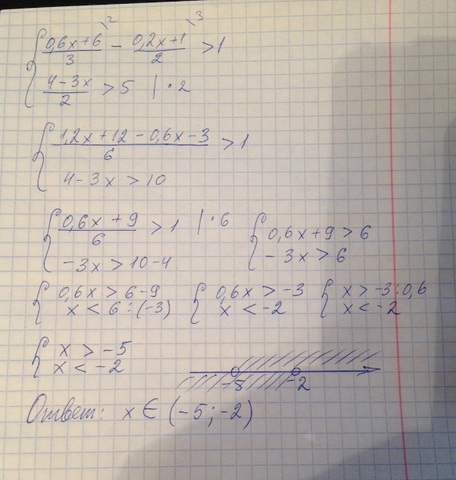 { (0,6x+6)/3 \2 − (0,2x+1)/2 \3 > 1
(4−3x)/2 > 5 | · 2
{ (1,2x+12−0,6x−3)/6 > 1
4−3x > 10
{ (0,6x+9)/6 > 1 | · 6 { 0,6x+9 > 6
−3x > 10−4 −3x > 6
{ 0,6x > 6−9 { 0,6x > −3 { x > −3:0,6
x < 6:(−3) x < −2 x < −2
{ x > −5
x < −2 −5 −2
Ответ: x ∈ (−5; −2)